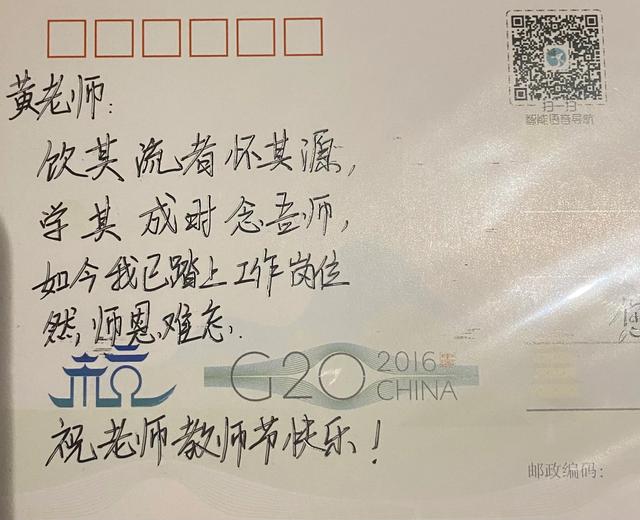 黄老师:
饮其流者怀其源,
学其成时念吾师,
如今我已踏上工作岗位
然,师恩难忘.
G20 2016 CHINA
祝老师教师节快乐!
扫一扫
智能语音导航
邮政编码: